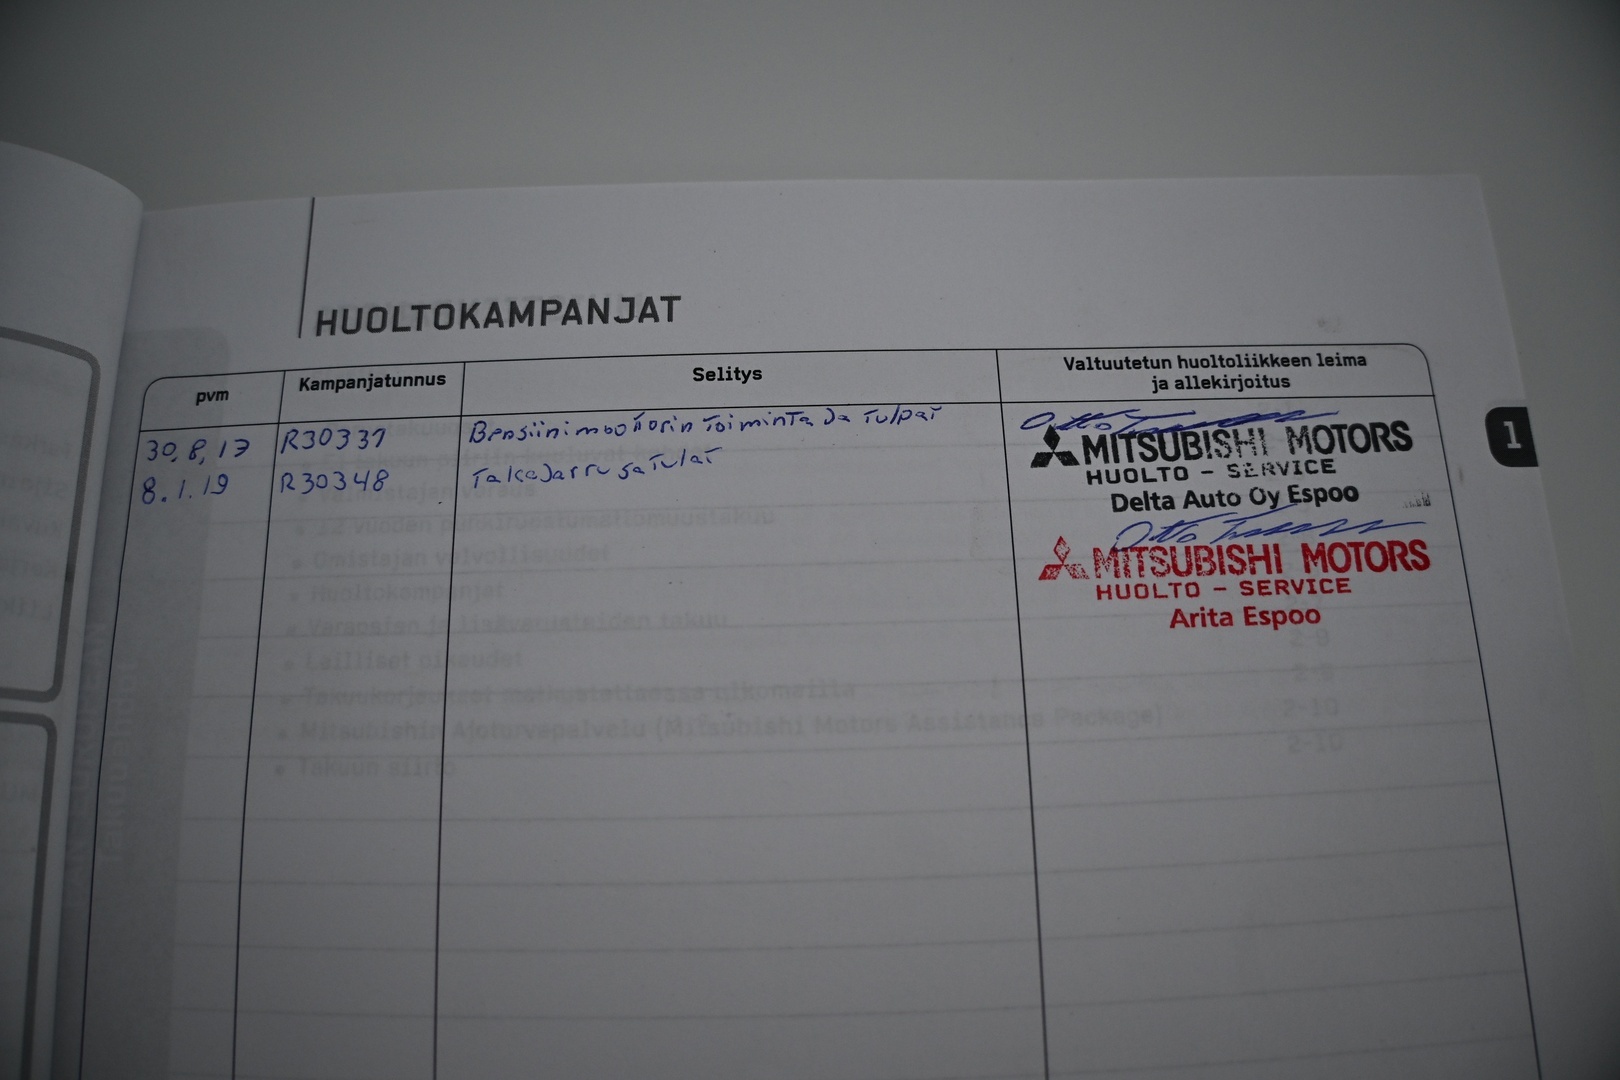 HUOLTOKAMPANJAT
pvm
Kampanjatunnus
Selitys
Valtuutetun huoltoliikkeen leima
ja allekirjoitus
30.8.17 R30337 Bensiinimoottorin toiminta Ja tulpat
8.1.19 R30348 TakaJarru satulat
MITSUBISHI MOTORS
HUOLTO - SERVICE
Delta Auto Oy Espoo
MITSUBISHI MOTORS
HUOLTO - SERVICE
Arita Espoo
1